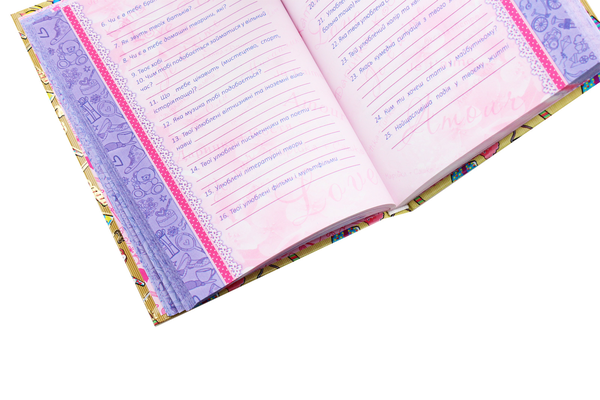 6. Чи є в тебе бра
7. Як звуть твоїх батьків?
8. Чи є в тебе домашні тварини, які?
9. Твоє хобі
10. Чим тобі подобається займатися у вільний
час?
11. Що тебе цікавить (мистецтво, спорт,
історія тощо)?
12. Яка музика тобі подобається?
13. Твої улюблені вітчизняні та іноземні
14. Твої улюблені письменники та поети
15. Улюблені літературні твори
16. Твої улюблені фільми і мультфільми
20.
21. Улюблені
22. Яка твоя улюблена
23. Твій улюблений колір та
23. Якась кумедна ситуація з твого
24. Ким ти хочеш стати у майбутньому?
25. Найщасливіша подія у твоєму житті
Love
Amour